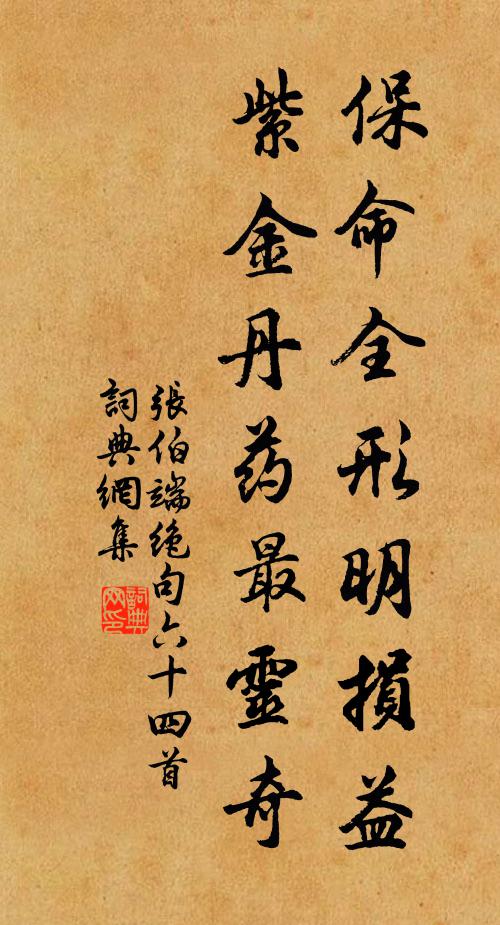 保命全形明損益
紫金丹药最靈奇
張伯端绝句六十四首
詞典網集
詞典
网印